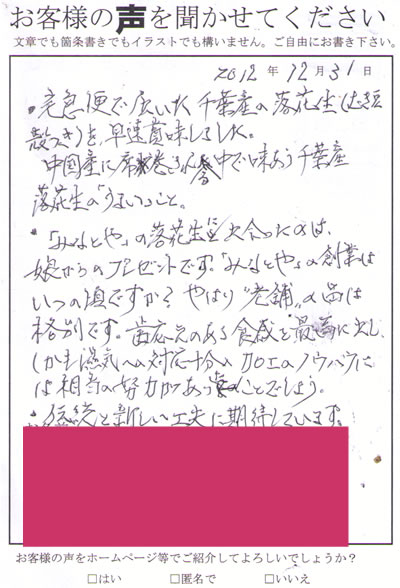 お客様の声を聞かせてください
文章でも箇条書きでもイラストでも構いません。ご自由にお書き下さい。
2012年12月31日
・宅急便で届いた千葉産の落花生(
殻つき)を、早速賞味しました。
中国産に席巻される中で味わう千葉産
落花生の「うまい」こと。
・「みなとや」の落花生に出会ったのは、
娘からのプレゼントです。「みなとや」の創業は
いつの頃ですか？やはり"老舗"の品は
格別です。歯応えのある食感を最高に出し、
しかも湿気への対応十分の加工のノウハウに
は相当の努力があったことでしょう。
・伝統と新しい工夫に期待しています。
お客様の声をホームページ等でご紹介してよろしいでしょうか？
□はい □匿名で □いいえ